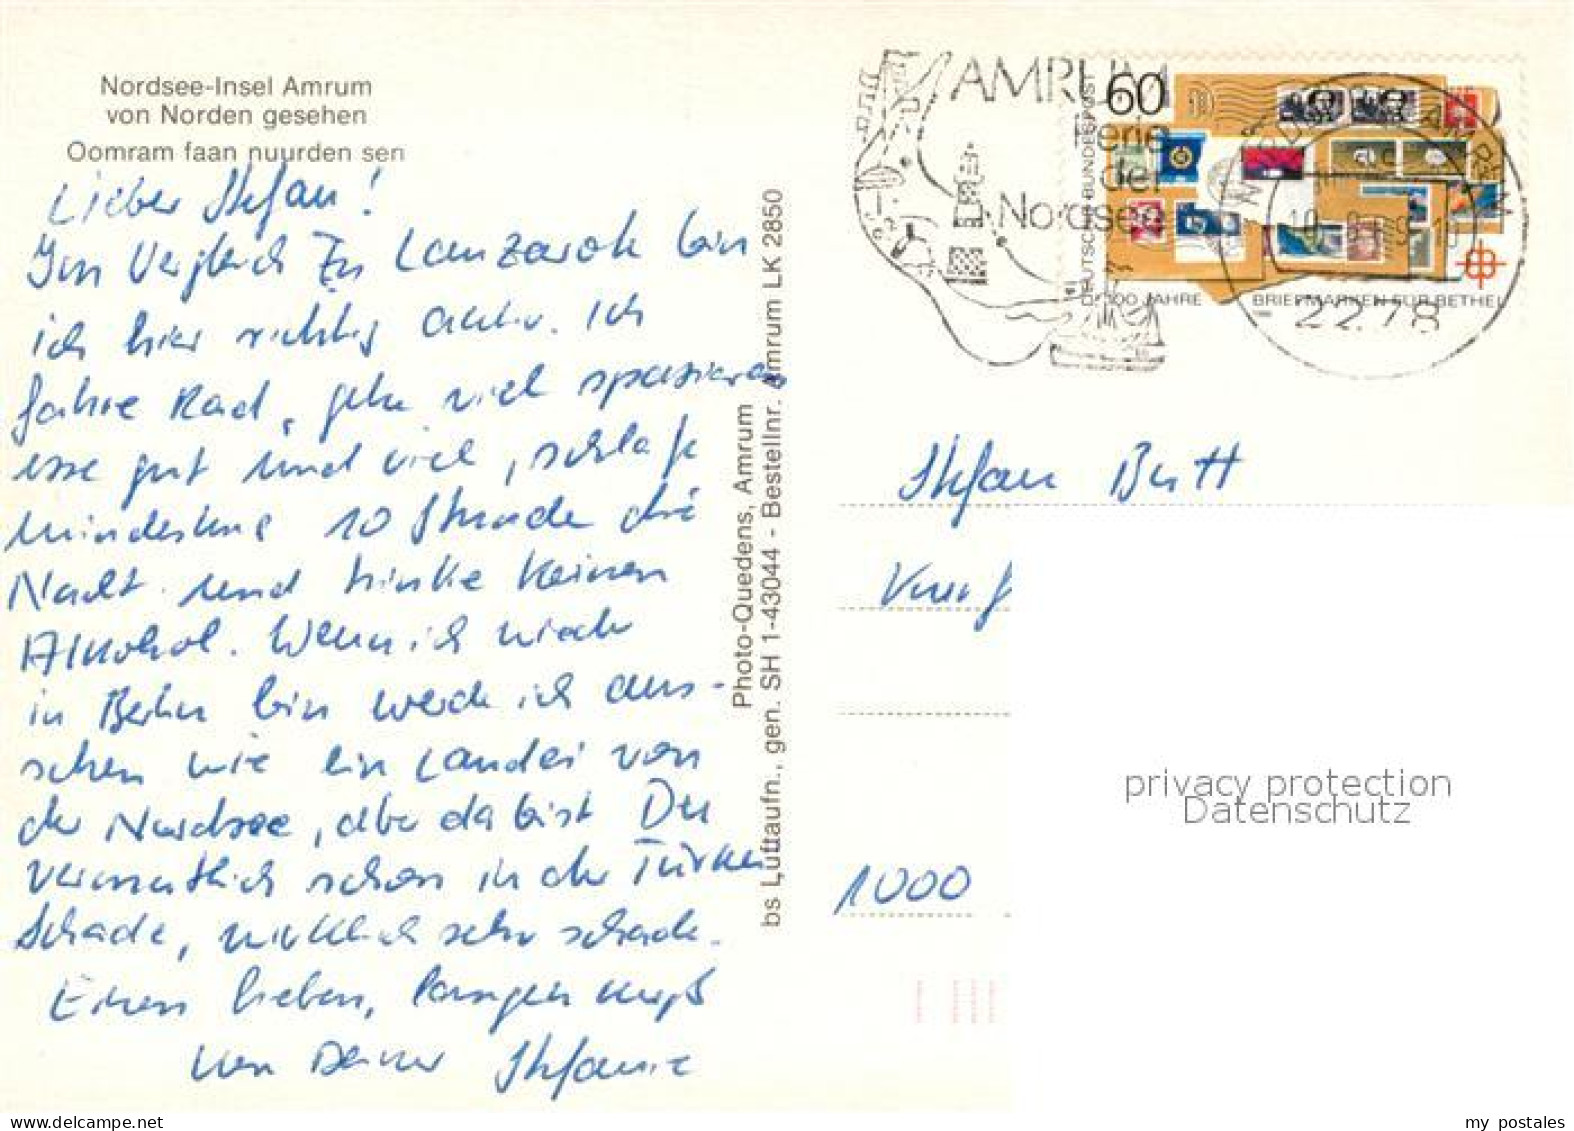 Nordsee-Insel Amrum
von Norden gesehen
Oomram faan nuurden sen
Lieber Stefan!
Im Vergleich zu Lanzarote bin
ich hier richtig aktiv. Ich
fahre Rad, gehe viel spazieren
esse gut und viel, schlafe
mindestens 10 Stunde die
Nacht und trinke keinen
Alkohol. Wenn ich wieder
in Berlin bin werde ich aus-
sehen wie ein Landei von
der Nordsee, aber da bist Du
vermutlich schon in der Türkei
Schade, wirklich sehr schade.
Einen lieben, langen Kuß
von Deiner Stefanie
Photo-Quedens, Amrum
bs Luftaufn., gen. SH 1-43044 - Bestellnr. Amrum LK 2850
AMRUM
Perle
der
Nordsee
60
DEUTSCHE BUNDESPOST
100 JAHRE BRIEFMARKEN FÜR BETHEL
AMRUM
2278
Stefan Butt
1000
privacy protection
Datenschutz
my postales